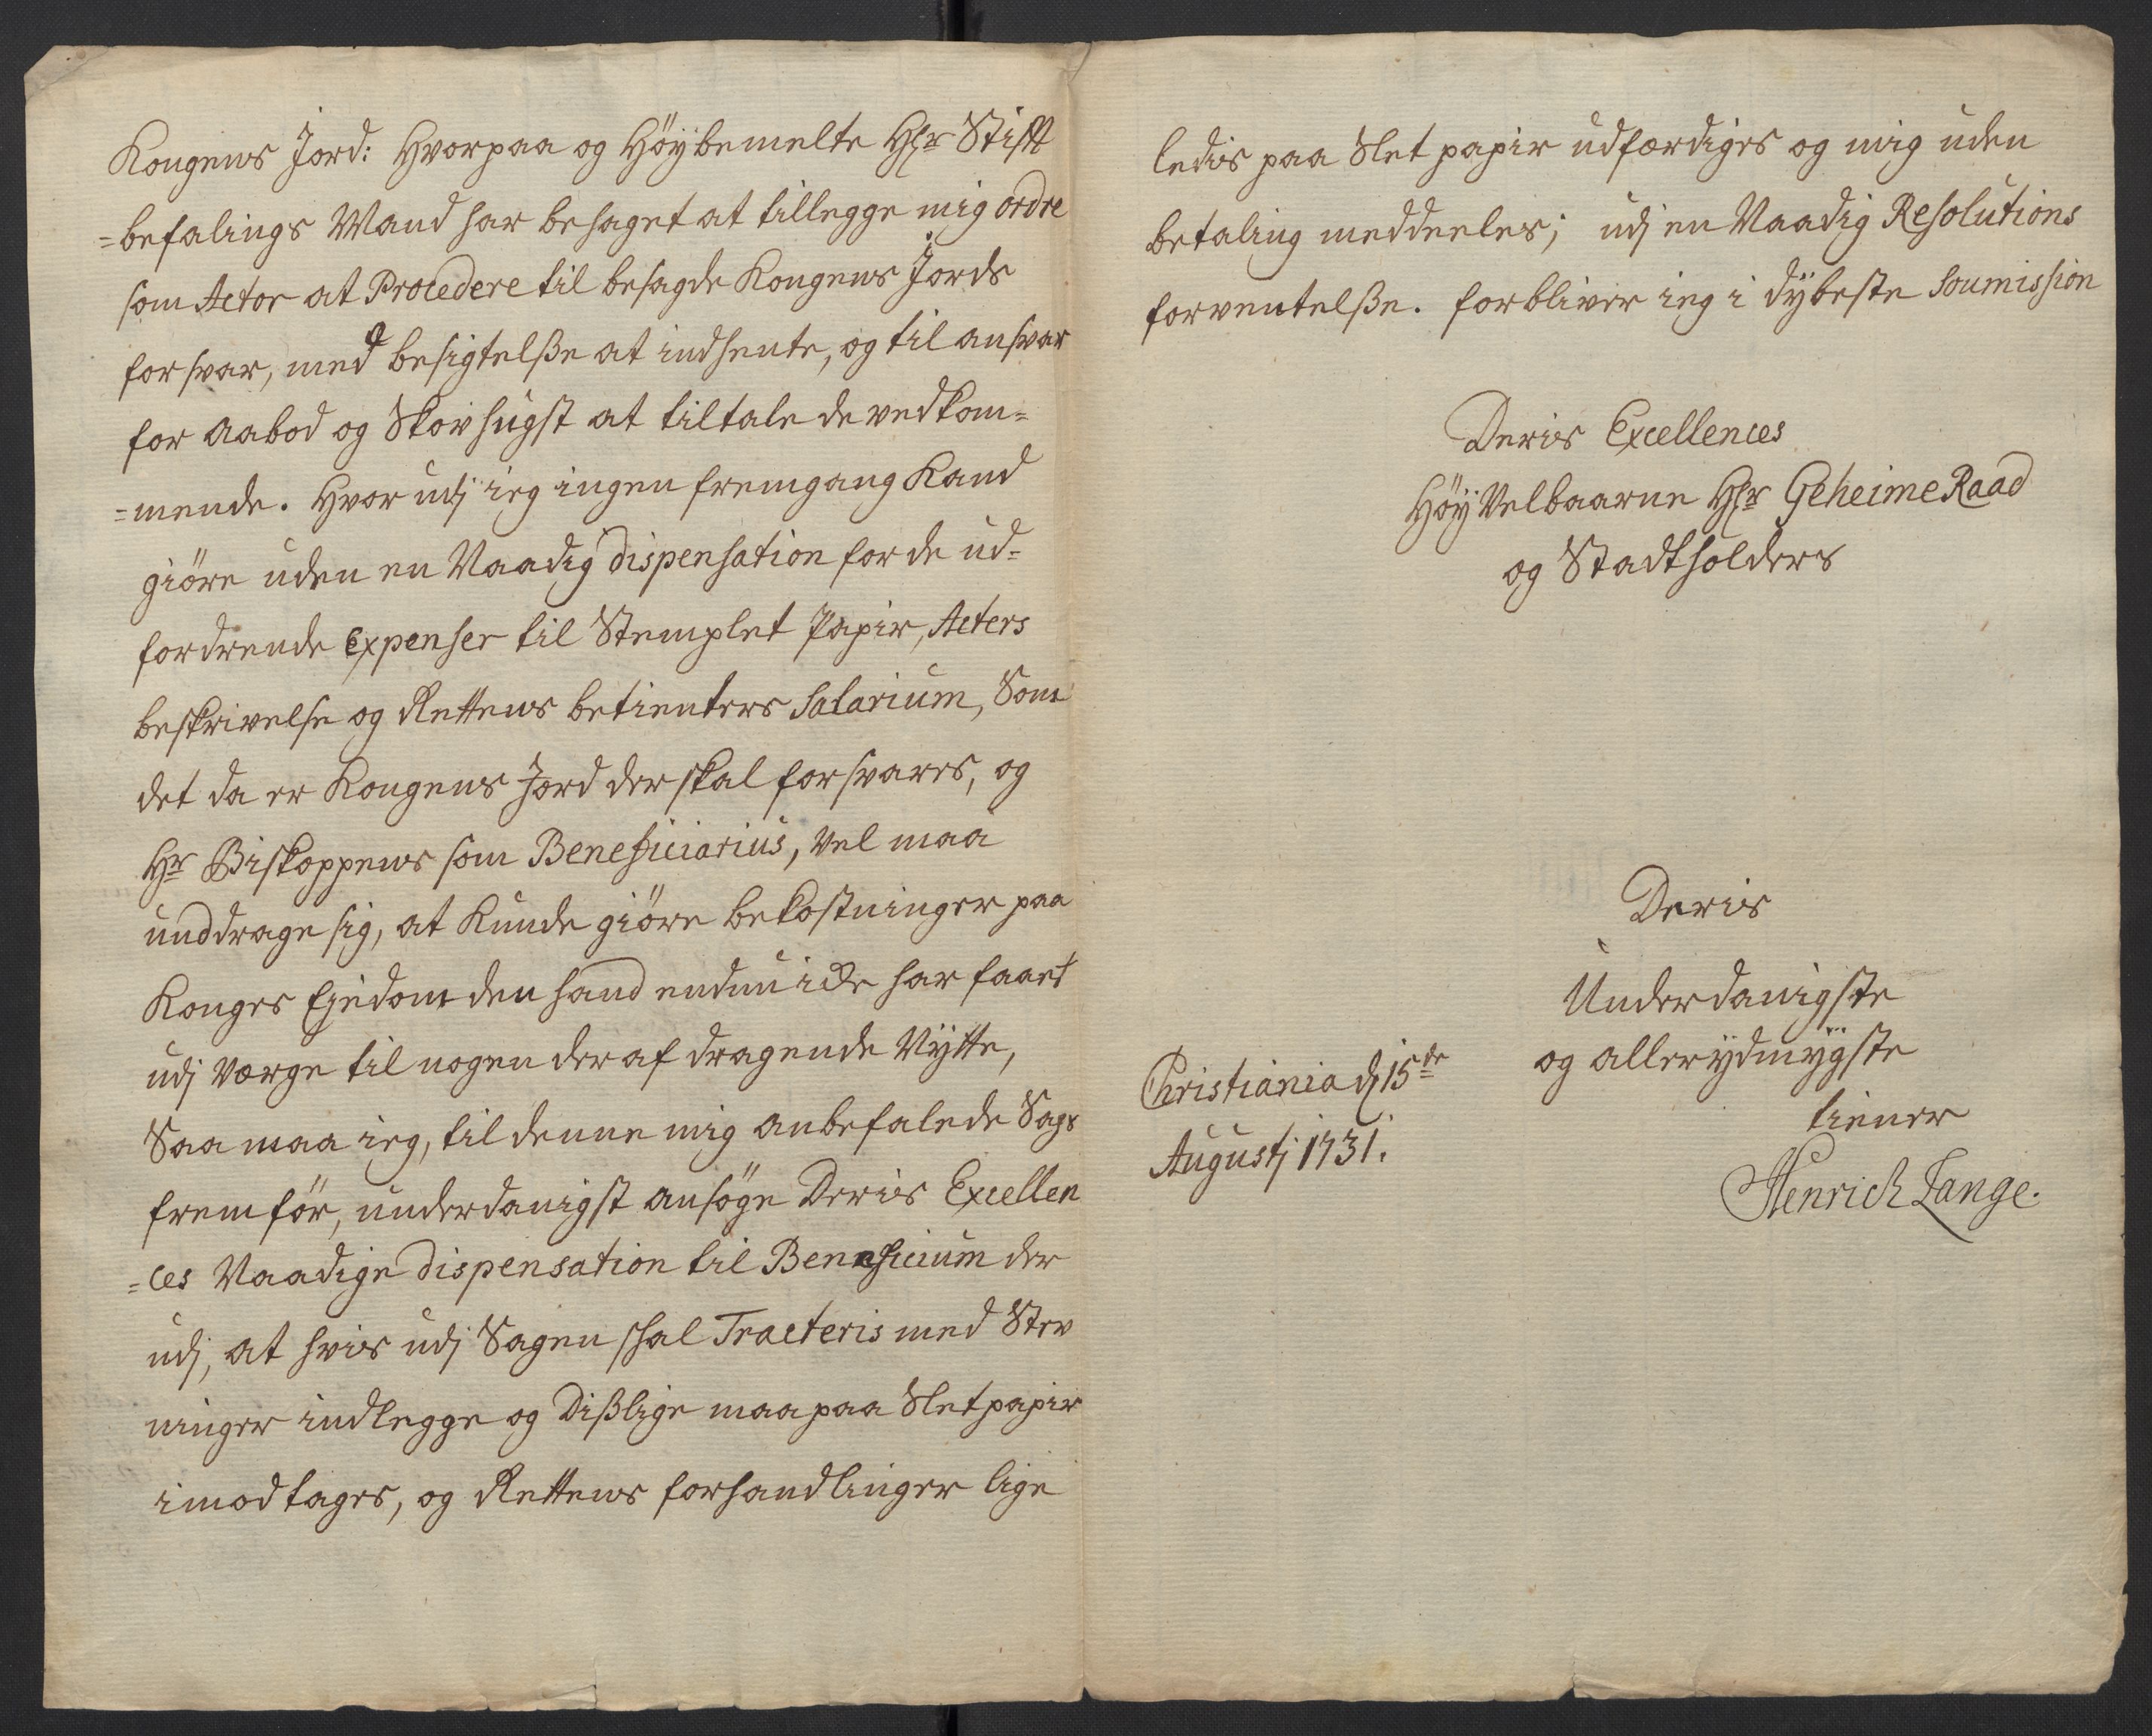 Kongens Jord: Hvorpaa og Höÿbemelte Hr Stift
=befalings Mand har behaget at tillegge mig ordre
som Actor at Procedere til besagde Kongens Jords
forsvar, med besigtelße at indhente, og til ansvar
for Aabod og Skovhugst at tiltale de vedkom=
=mende. Hvor udj ieg ingen fremgang Kand
giöre uden en Naadig dispensation for de ud=
fordrende Expenser til Stemplet Papir, Acters
beskrivelse og Rettens betienters Salarium, Som
det da er Kongens Jord der skal forsvares, og
Hr Biskoppens som Beneficiarius, vel maa
unddrage sig, at Kunde giöre bekostninger paa
Konges Ejedom den hand endnu icke har faaet
udj værge til nogen deraf dragende Nÿtte,
Saa maa ieg, til denne mig anbefalede Sags
fremför, underdanigst ansöge Deris Excellen
=ces Naadige dispensation til Beneficium der
udj, at hvis udj Sagen skal Tracteris med Stev
ninger indlegge og dißlige maa paa Slet papir
imodtages, og Rettens forhandlinger lige
ledis paa Slet papir udfærdiges og mig uden
betaling meddeeles; udj en Naadig Resolutions
forventelße. forbliver ieg i dÿbeste Soumission
Deris Excellences
HöÿVelbaarne Hr GeheimeRaad
og Stadtholders
Deris
Underdanigste
og allerÿdmÿgste
tiener
Henrich Lange.
Christiania d 15de
Augustj 1731.